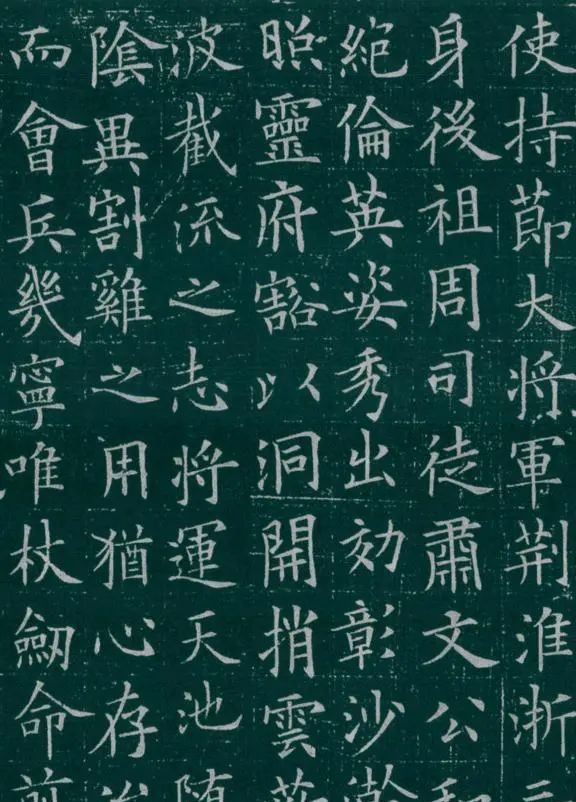 使持節大将軍荆淮浙三
身後祖周司徒肅文公和
絶倫英姿秀出効彰沙
照靈府豁以洞開捎雲
波截流之志将運天池随
陰異割雞之用猶心存
而會兵幾寧唯杖劒命前